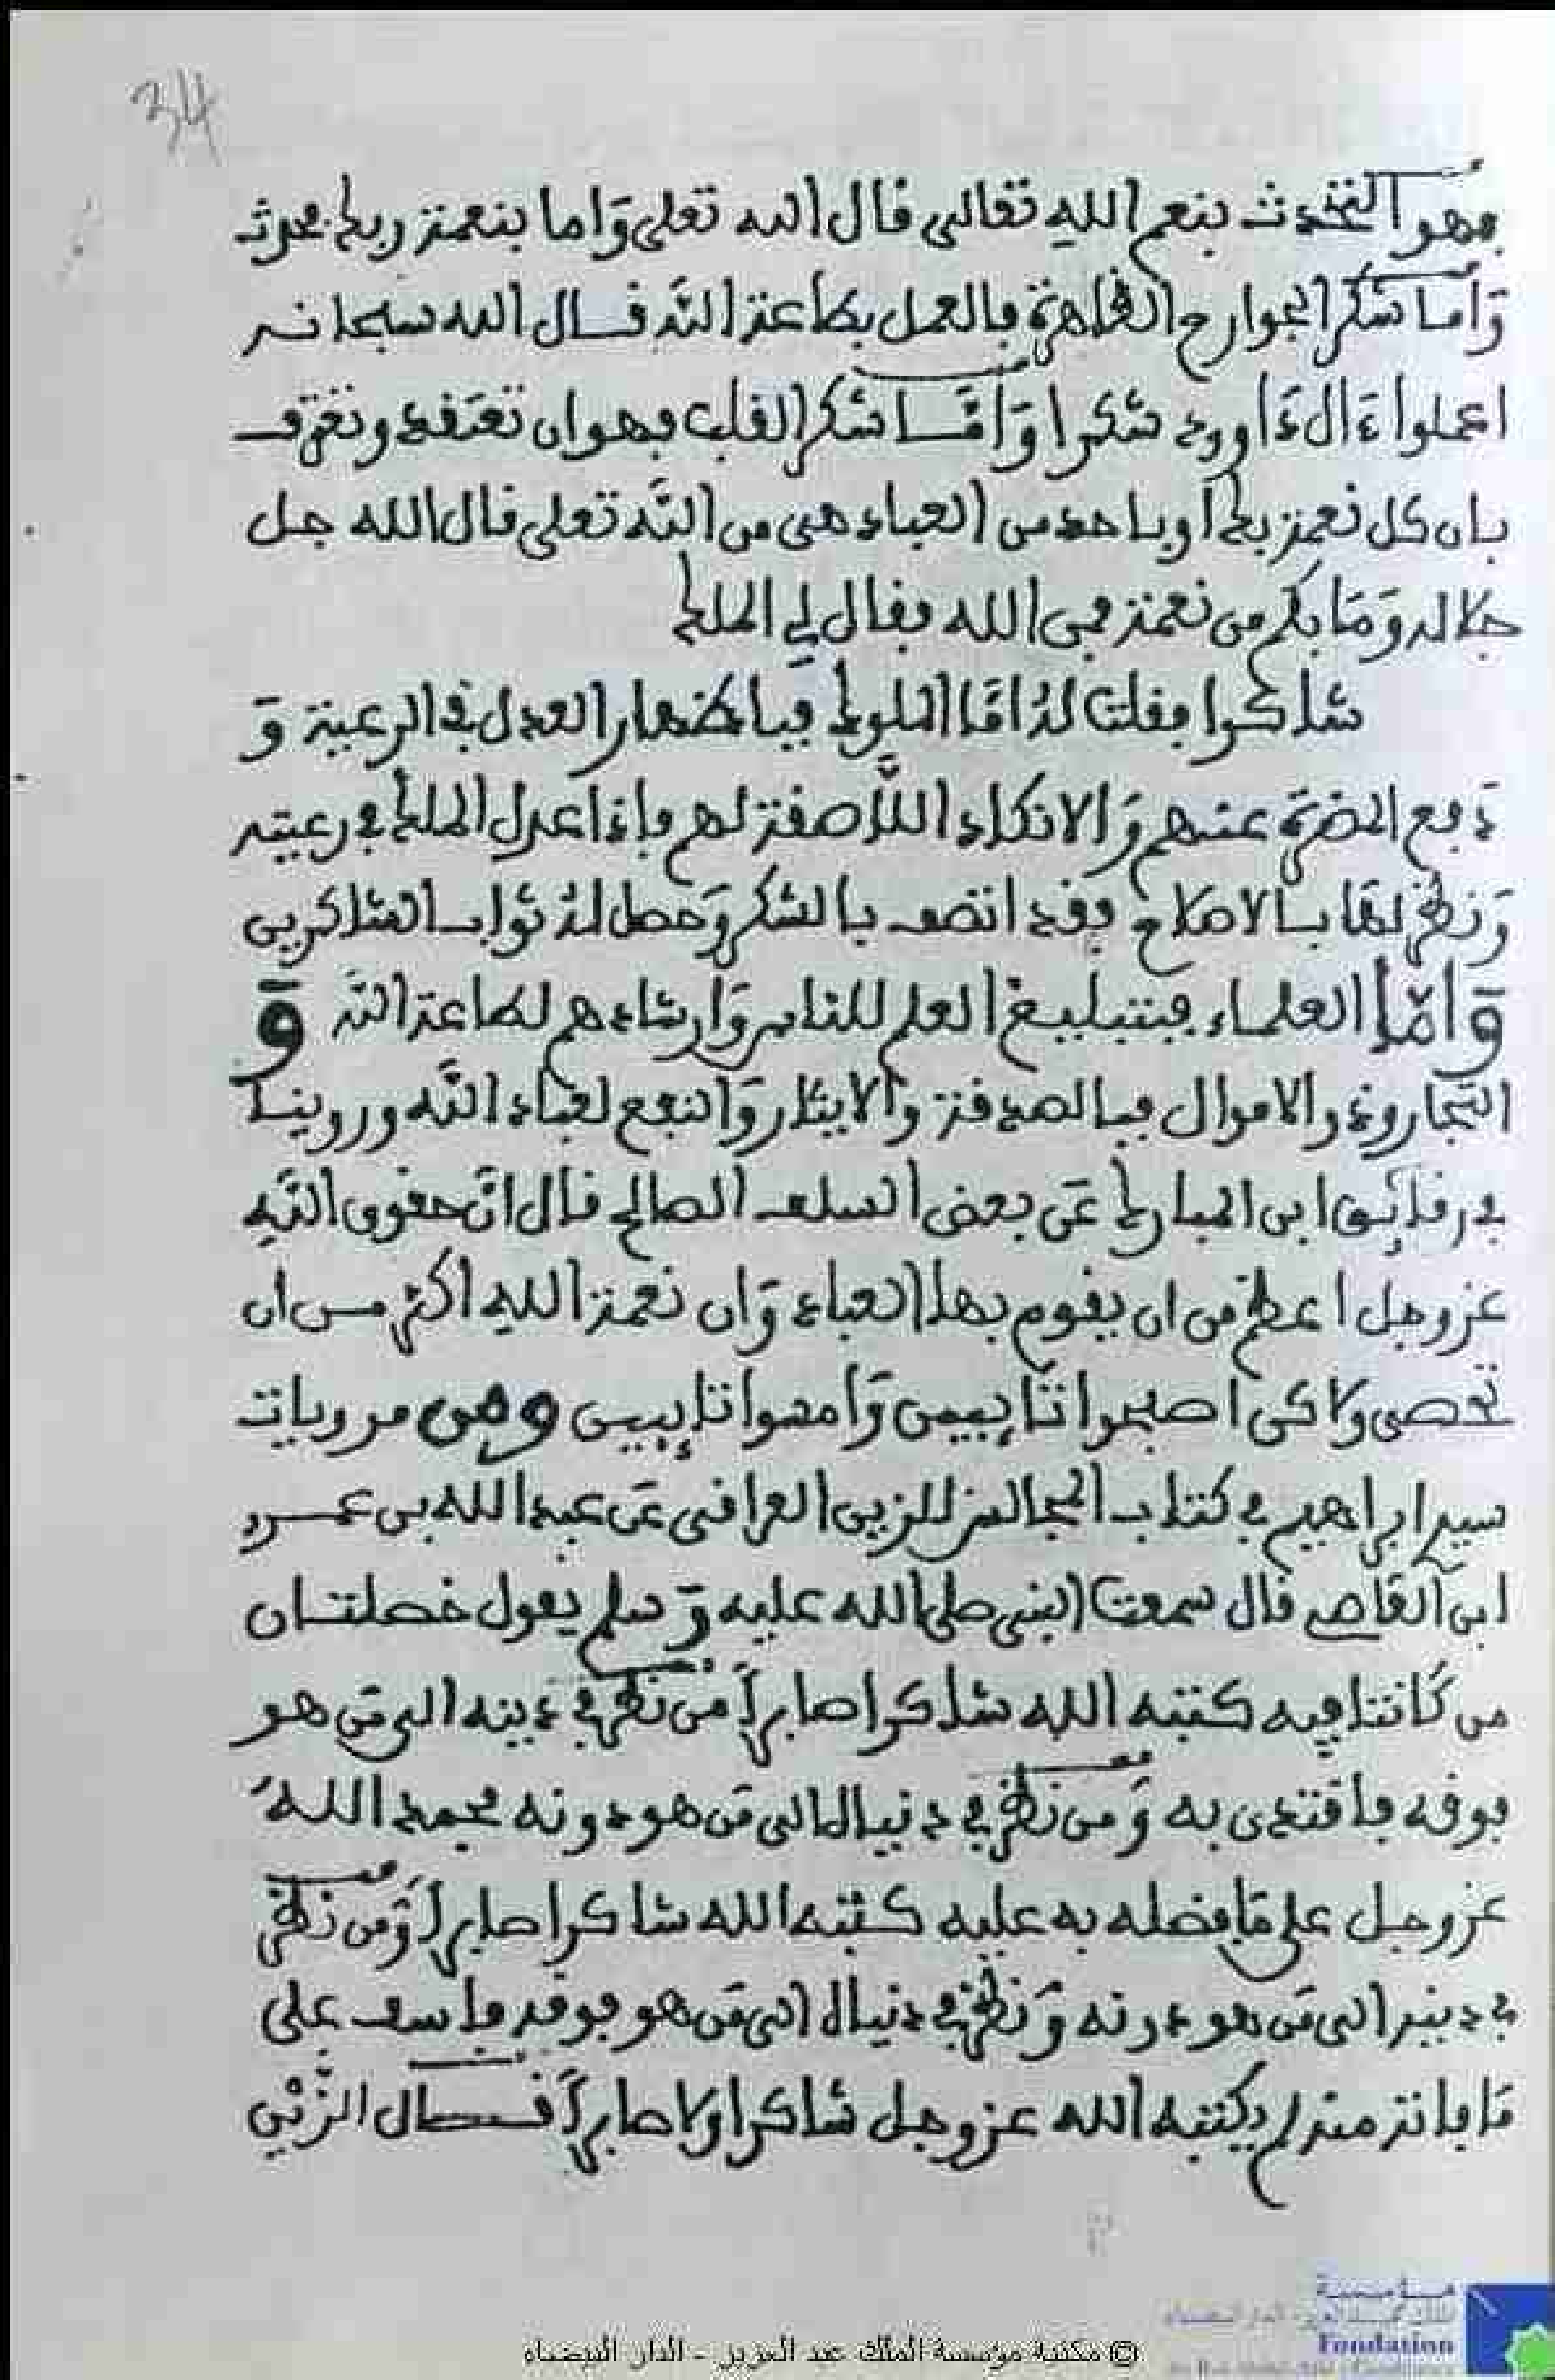 34
فهو التحدث بنعم الله تعالى قال الله تعلى وَاما بنعمة ربك فحدث
وَأما شكر الجوارح الظاهرة فالعمل بطاعة الله قال الله سبحانه
اعملوا ءَال دَاوود شكرا وَامَّا شكر القلب فهو ان تعتقد وتعترف
بان كل نعمة بك او باحد من العباد هى من الله تعلى قال الله جل
جلاله وَمَا بكم من نعمة فمن الله فقال لي الملك
شاكرا فقلت لهُ امَّا الملوك فباظهار العدل في الرعية وَ
دَفع المضرة عنهم وَالانكاد اللَّاصقة لهم فإذا عدل الملك في رعيته
وَنظر لهَا بالاصلاح فقد اتصف بالشكر وَحصل لهُ ثواب الشاكرين
وَامَّا العلماء فبتبليغ العلم للناس وَارشادهم لطاعة الله وَ
التجار وذو الاموال فبالصدقة وَالايثار وَالنفع لعباد الله وروينا
في رقائق ابن المبارك عَن بعض السلف الصالح قال انَّ حقوق الله
عز وجل اعظم من ان يقوم بها العباد وَان نعمة الله اكثر من ان
تحصى ولاكن اصبحوا تائبين وَامسوا تائبين ومن مرويات
سير ابراهيم في كتاب المجالس للزين العراقى عَن عبد الله بن عمرو
ابن القاصى قال سمعت النبى صلى الله عليه وَسلم يقول خصلتان
من كَانتا فيه كتبه الله شاكرا صابراً من نظر في دَينه الى مَن هو
فوقه فاقتدى به وَمن نظر في دنياه الى مَن هو دونه فحمد اللهَ
عز وجل على مَا فضله به عليه كتبه الله شاكرا صابراً وَمن نظر
في دينه الى مَن هو دونه وَنظر في دنياه الى مَن هو فوقه فاسف على
مَا فاته منه لم يكتبه الله عز وجل شاكرا ولا صابراً قال الزَّيْن
© مكتبة مؤسسة الملك عبد العزيز - الدار البيضاء
مؤسسة
Fondation